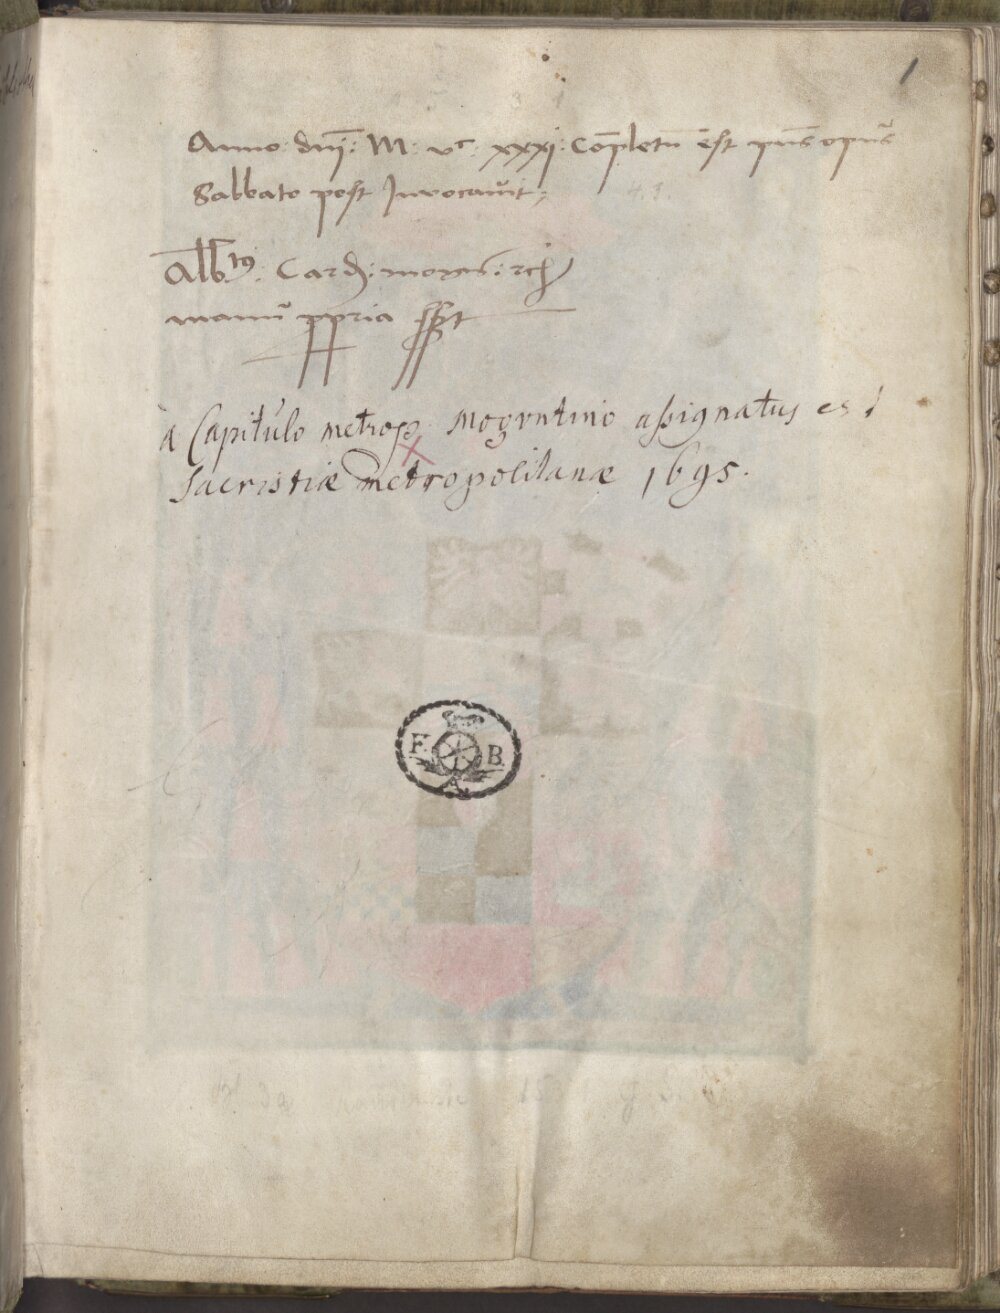 1
Anno dn̄j: M: vᶜ: xxxj: Cōpletū ēst pn̄s opus
Sabbato post Inuocauit;
Albᵗꝰ: Card: mogn̄: rc̄
manū ppria sspt
à Capitulo metrop. Mogvntino assignatus est
Sacristiæ metropolitanæ 1695.
F. B.
A.